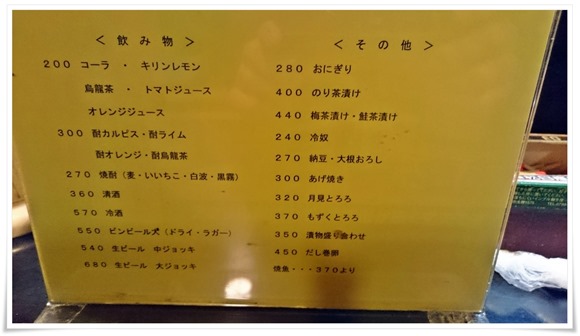 ＜ 飲 み 物 ＞
200 コーラ ・ キリンレモン
烏龍茶 ・ トマトジュース
オレンジジュース
300 酎カルピス・酎ライム
酎オレンジ・酎烏龍茶
270 焼酎（麦・いいちこ・白波・黒霧）
360 清酒
570 冷酒
550 ビンビール大（ドライ・ラガー）
540 生ビール 中ジョッキ
680 生ビール 大ジョッキ
＜ そ の 他 ＞
280 おにぎり
400 のり茶漬け
440 梅茶漬け・鮭茶漬け
240 冷奴
270 納豆・大根おろし
300 あげ焼き
320 月見とろろ
370 もずくとろろ
350 漬物盛り合わせ
450 だし巻卵
焼魚・・・370より